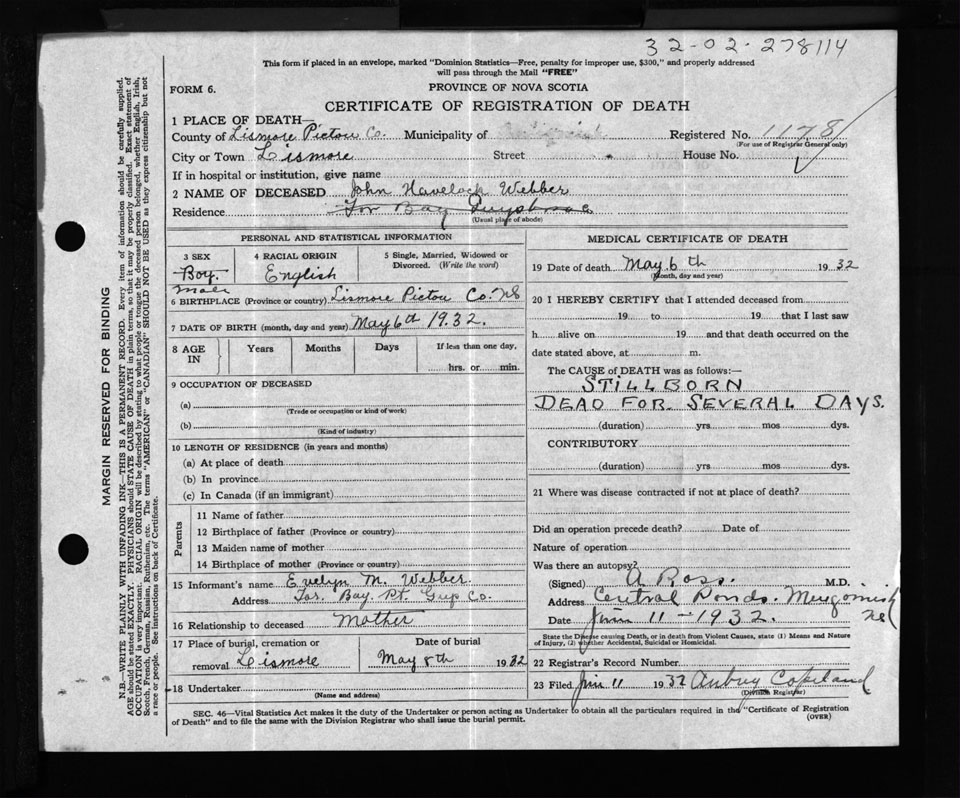 32-02-278114
This form if placed in an envelope, marked "Dominion Statistics—Free, penalty for improper use, $300," and properly addressed
will pass through the Mail "FREE"
FORM 6.
PROVINCE OF NOVA SCOTIA
CERTIFICATE OF REGISTRATION OF DEATH
1 PLACE OF DEATH—
County of Lismore Pictou Co. Municipality of Registered No. 1178
(For use of Registrar General only)
City or Town Lismore Street House No.
If in hospital or institution, give name
2 NAME OF DECEASED John Havelock Webber
Residence Tor Bay Guysboro
(Usual place of abode)
PERSONAL AND STATISTICAL INFORMATION
3 SEX
Boy.
Male
4 RACIAL ORIGIN
English
5 Single, Married, Widowed or
Divorced. (Write the word)
6 BIRTHPLACE (Province or country) Lismore Pictou Co. NS
7 DATE OF BIRTH (month, day and year) May 6th 1932.
8 AGE
IN
Years
Months
Days
If less than one day,
hrs. or min.
9 OCCUPATION OF DECEASED
(a)
(Trade or occupation or kind of work)
(b)
(Kind of industry)
10 LENGTH OF RESIDENCE (in years and months)
(a) At place of death
(b) In province
(c) In Canada (if an immigrant)
Parents
11 Name of father
12 Birthplace of father (Province or country)
13 Maiden name of mother
14 Birthplace of mother (Province or country)
15 Informant's name Evelyn M. Webber.
Address Tor. Bay. Pt. Guys Co.
16 Relationship to deceased Mother
17 Place of burial, cremation or
removal Lismore
Date of burial
May 8th 1932
18 Undertaker
(Name and address)
MEDICAL CERTIFICATE OF DEATH
19 Date of death May 6th 1932
(Month, day and year)
20 I HEREBY CERTIFY that I attended deceased from
19 to 19 that I last saw
h alive on 19 and that death occurred on the
date stated above, at m.
The CAUSE of DEATH was as follows:—
STILLBORN
DEAD FOR SEVERAL DAYS.
(duration) yrs. mos dys.
CONTRIBUTORY
(duration) yrs mos dys.
21 Where was disease contracted if not at place of death?
Did an operation precede death? Date of
Nature of operation
Was there an autopsy?
(Signed) A Ross. M.D.
Address Central Ponds. Merigomish
NS
Date June 11 - 1932.
State the Disease causing Death, or in death from Violent Causes, state (1) Means and Nature
of Injury, (2) whether Accidental, Suicidal or Homicidal.
22 Registrar's Record Number
23 Filed June 11 1932 Aubrey Copeland
(Division Registrar)
SEC. 46—Vital Statistics Act makes it the duty of the Undertaker or person acting as Undertaker to obtain all the particulars required in the "Certificate of Registration
of Death" and to file the same with the Division Registrar who shall issue the burial permit.
(OVER)
MARGIN RESERVED FOR BINDING
N.B.—WRITE PLAINLY WITH UNFADING INK—THIS IS A PERMANENT RECORD. Every item of information should be carefully supplied.
AGE should be stated EXACTLY. PHYSICIANS should STATE CAUSE OF DEATH in plain terms, so that it may be properly classified. Exact statement of
OCCUPATION is very important. RACIAL ORIGIN will be described by stating to what people or tongue the deceased person belonged, whether English, Irish,
Scotch, French, German, Russian, Ruthenian, etc. The terms "AMERICAN" or "CANADIAN" SHOULD NOT BE USED as they express citizenship but not
a race or people. See instructions on back of Certificate.